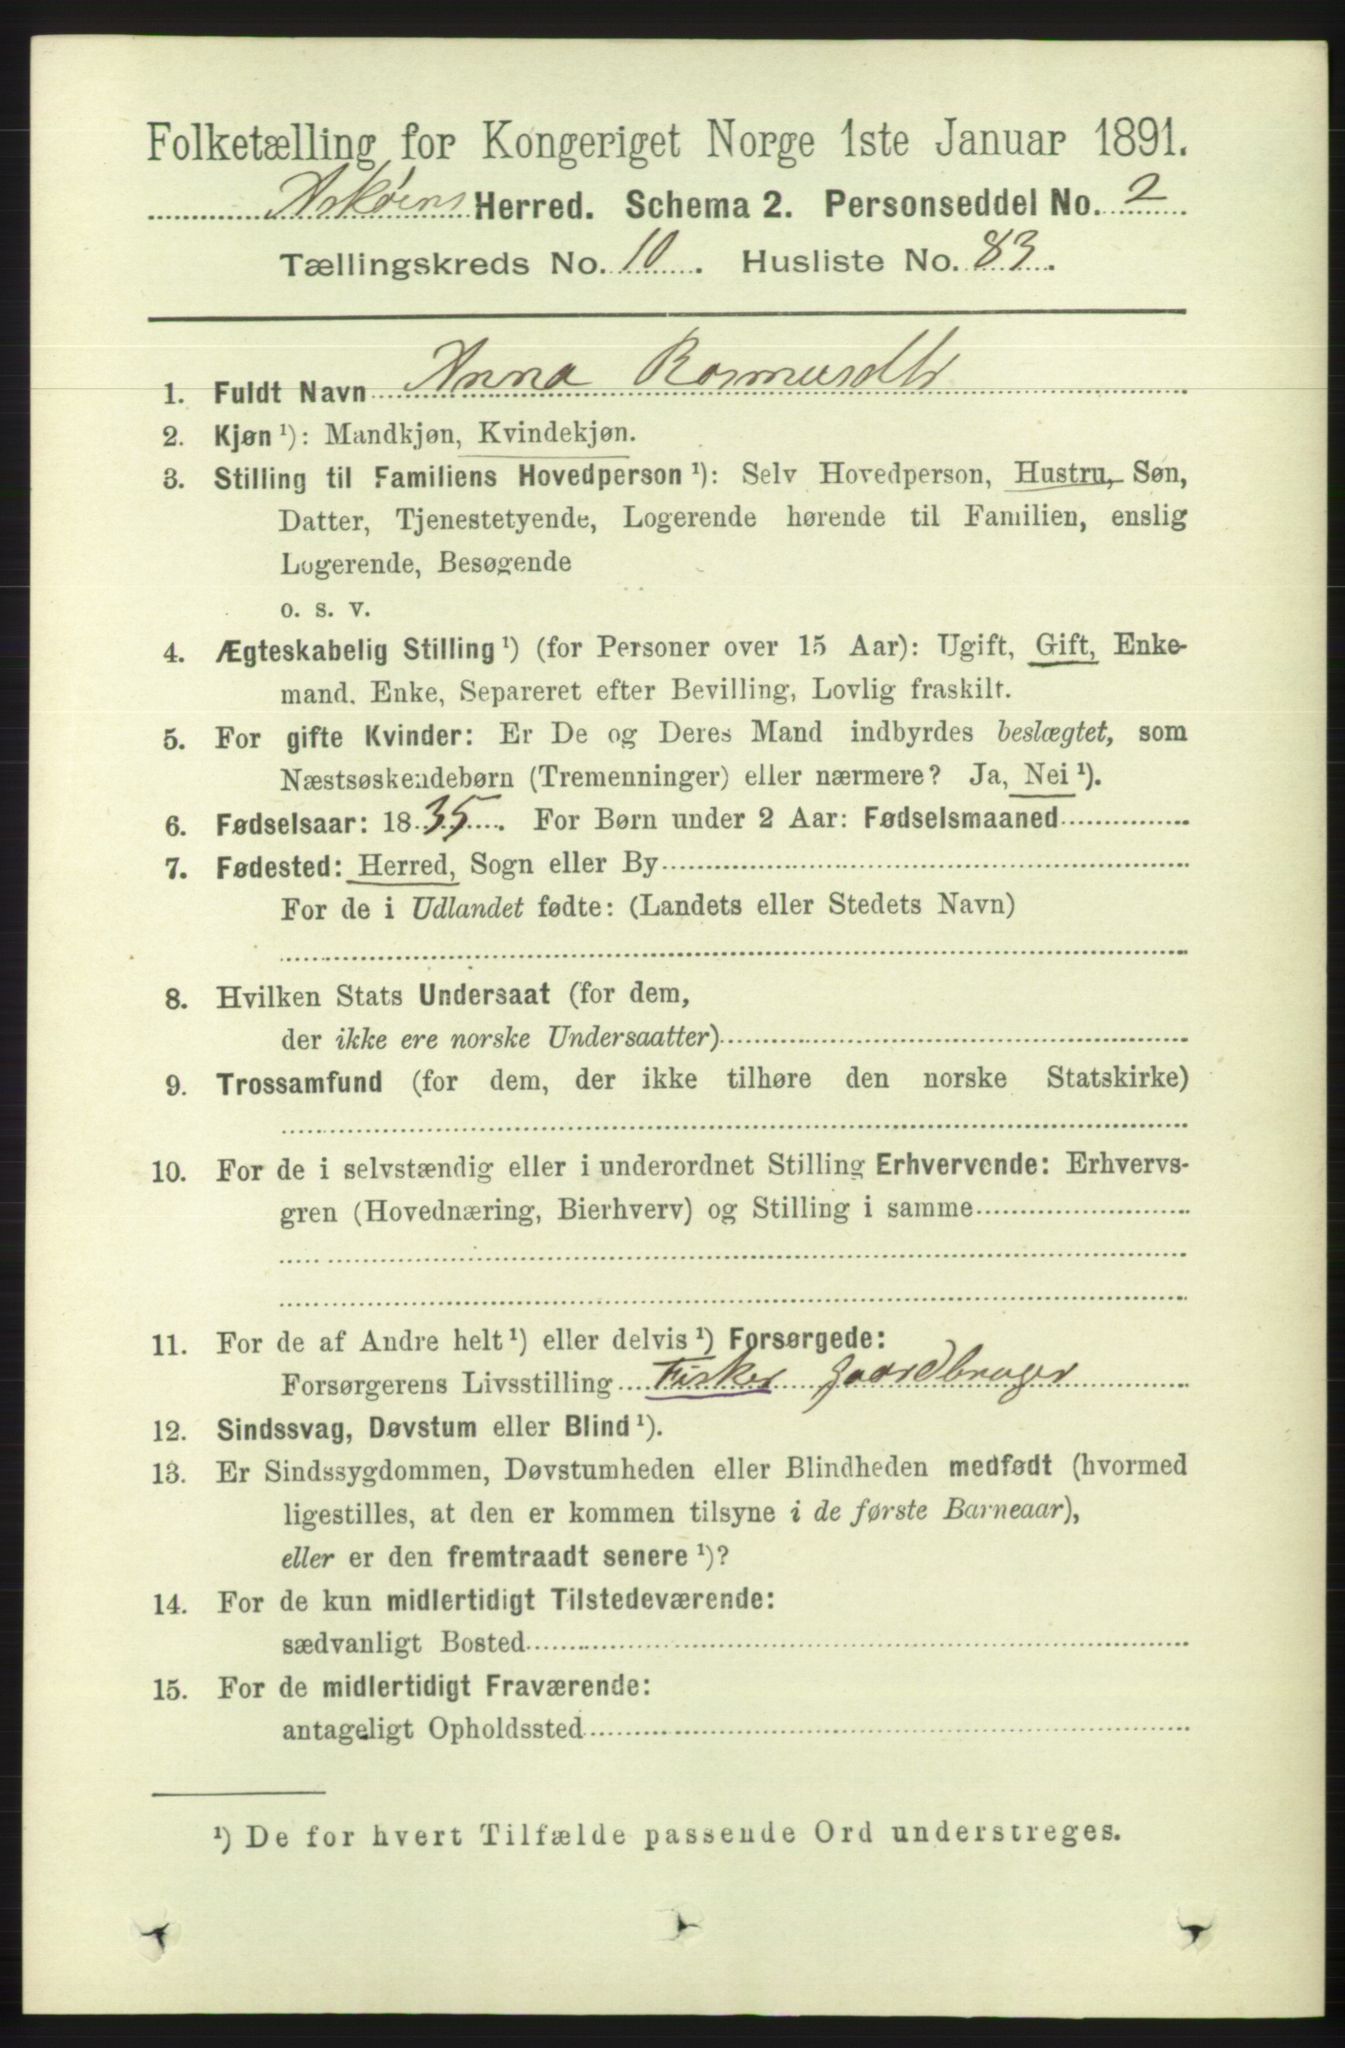 Folketælling for Kongeriget Norge 1ste Januar 1891.
Askøens Herred. Schema 2. Personseddel No. 2
Tællingskreds No. 10. Husliste No. 83.
1. Fuldt Navn Anna Rasmusdtr
2. Kjøn ¹): Mandkjøn, Kvindekjøn.
3. Stilling til Familiens Hovedperson ¹): Selv Hovedperson, Hustru, Søn,
Datter, Tjenestetyende, Logerende hørende til Familien, enslig
Logerende, Besøgende
o. s. v.
4. Ægteskabelig Stilling ¹) (for Personer over 15 Aar): Ugift, Gift, Enke-
mand, Enke, Separeret efter Bevilling, Lovlig fraskilt.
5. For gifte Kvinder: Er De og Deres Mand indbyrdes beslægtet, som
Næstsøskendebørn (Tremenninger) eller nærmere? Ja, Nei ¹).
6. Fødselsaar: 1835. For Børn under 2 Aar: Fødselsmaaned
7. Fødested: Herred, Sogn eller By
For de i Udlandet fødte: (Landets eller Stedets Navn)
8. Hvilken Stats Undersaat (for dem,
der ikke ere norske Undersaatter)
9. Trossamfund (for dem, der ikke tilhøre den norske Statskirke)
10. For de i selvstændig eller i underordnet Stilling Erhvervende: Erhvervs-
gren (Hovednæring, Bierhverv) og Stilling i samme
11. For de af Andre helt ¹) eller delvis ¹) Forsørgede:
Forsørgerens Livsstilling Fisker Gaardbruger
12. Sindssvag, Døvstum eller Blind ¹).
13. Er Sindssygdommen, Døvstumheden eller Blindheden medfødt (hvormed
ligestilles, at den er kommen tilsyne i de første Barneaar),
eller er den fremtraadt senere ¹)?
14. For de kun midlertidigt Tilstedeværende:
sædvanligt Bosted
15. For de midlertidigt Fraværende:
antageligt Opholdssted
¹) De for hvert Tilfælde passende Ord understreges.